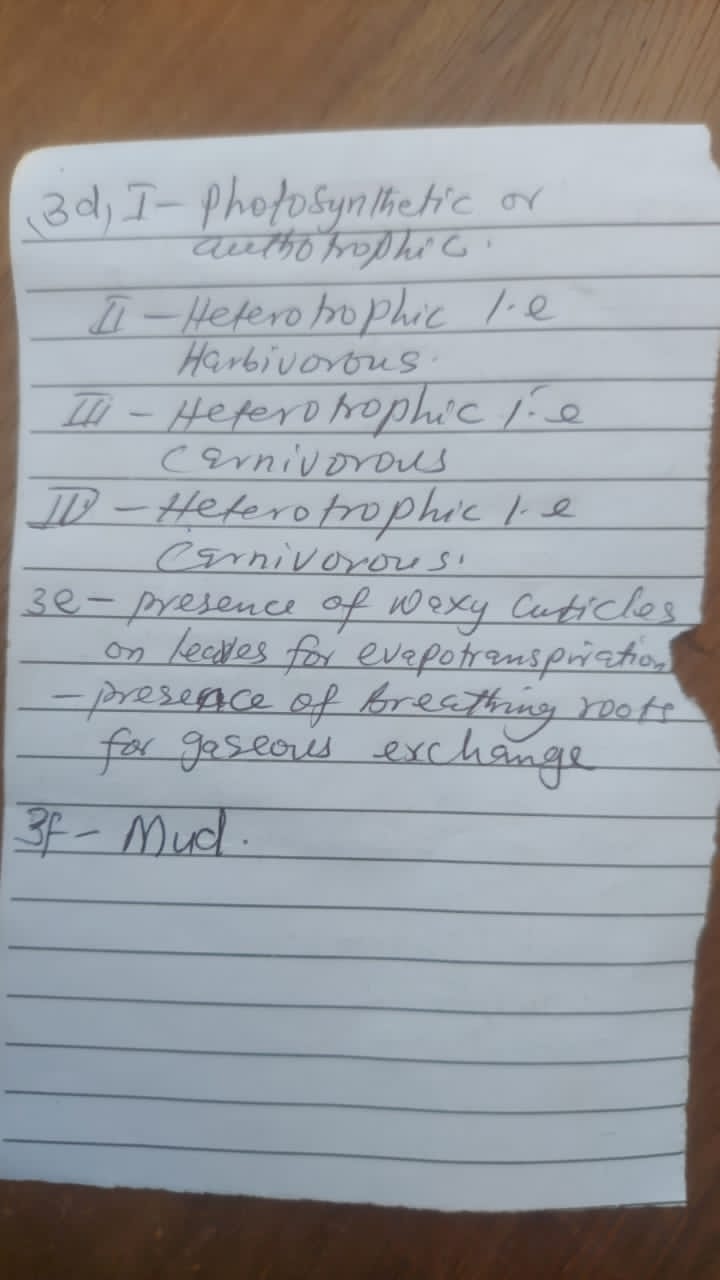 3d, I - Photosynthetic or
authotrophic.
II - Heterotrophic I.e
Harbivorous.
III - Heterotrophic I.e
Carnivorous
IV - Heterotrophic I.e
Carnivorous.
3e - presence of waxy Cuticles
on leaves for evapotranspiration
- presence of breathing roots
for gaseous exchange
3f - Mud.